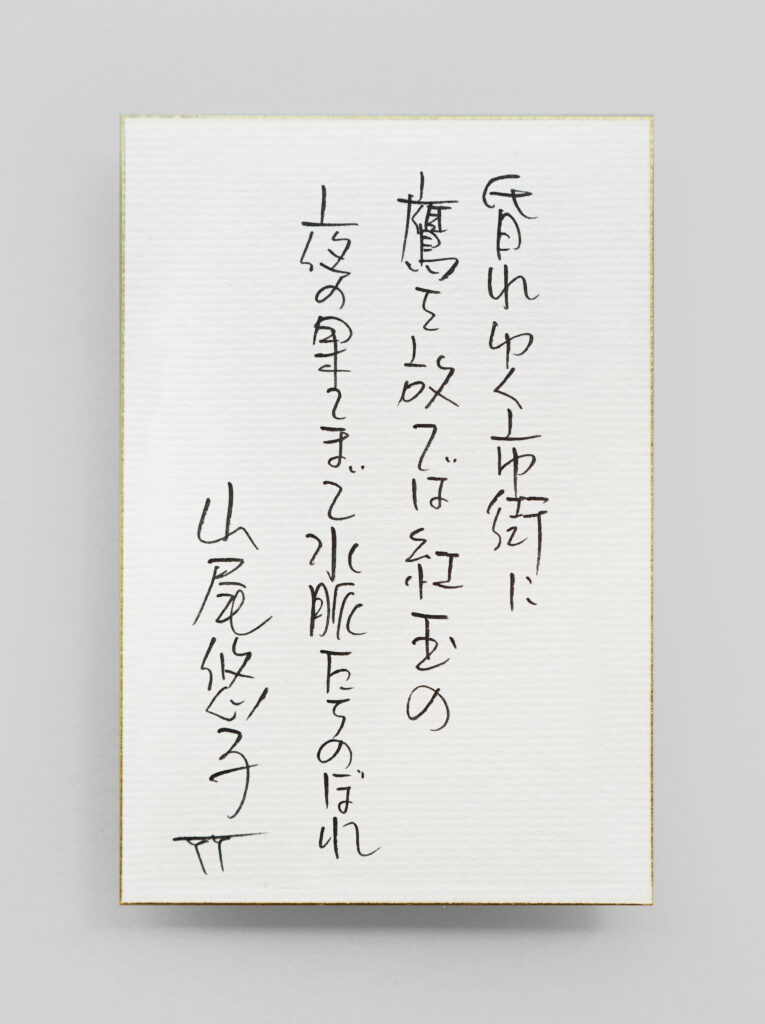 昏れゆく市街に
鷹を放てば紅玉の
夜の果てまで水脈たちのぼれ
山尾悠子